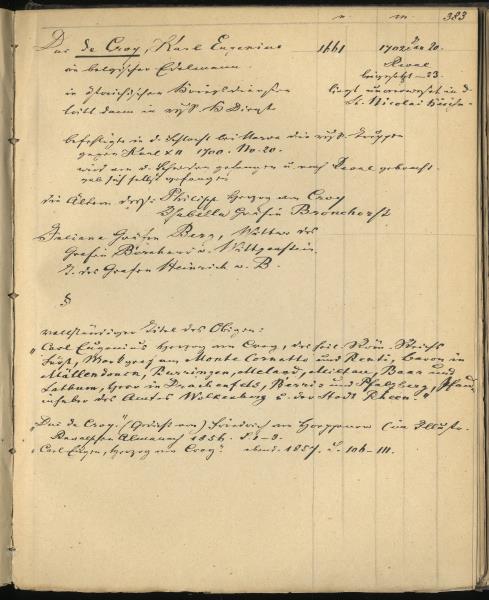 n. m. 383
Duc de Croy, Karl Eugenius 1661 1702 Jan 20.
ein belgischer Edelmann. Reval
in österreichischen Kriegsdiensten beigesetzt
tritt dann in russ. K Dienst liegt unverwest in d. St. Nicolai Kirche
befehligte in d. Schlacht bei Narwa die russ. Truppen
gegen Karl XII 1700. No. 20.
wird von d. Schweden gefangen u. nach Reval gebracht.
gab sich selbst gefangen
die Ältern dess: Philipp Herzog von Croy
Isabella Gräfin Bronchorst
Juliana Gräfin Berg, Wittwe des
Grafen Bernhard v. Wittgenstein
T. des Grafen Heinrich v. B.
§
vollständiger Titel des Obigen:
„Carl Eugenius Herzog von Croy, des heil. Röm. Reichs
Fürst, Markgraf von Monte Cornetto und Renti, Baron in
Millendonck,
Herr in Drachenfels, und Pfalzberg, Pfand-
inhaber des Amtes Wilkenburg u. der Stadt Rheen."
„Duc de Croy" (Gedicht von) Friedrich von (in Illustr.
Revalschen Almanach 1856. S. 1-3.
„Carl Eugen, Herzog von Croy" ebend. 1857. S. 106-111.